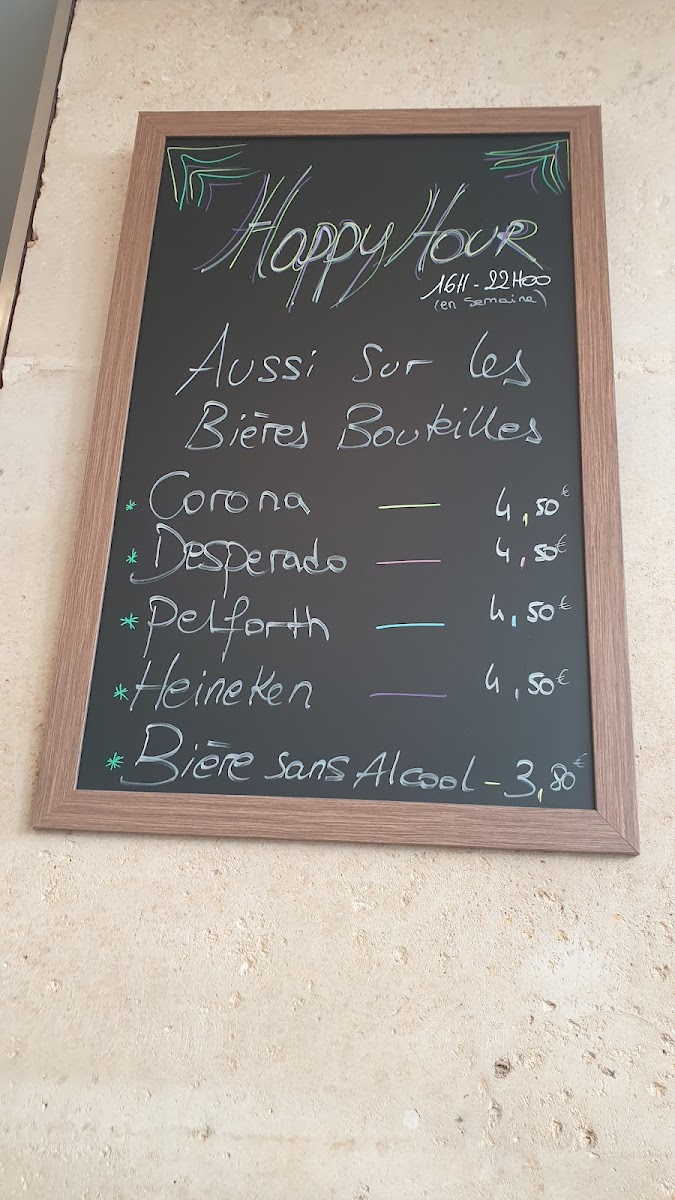 Happy Hour
16H - 22H00
(en semaine)
Aussi sur les
Bières Bouteilles
* Corona — 4,50€
* Desperado — 4,50€
* Pelforth — 4,50€
* Heineken — 4,50€
* Bière sans Alcool - 3,80€